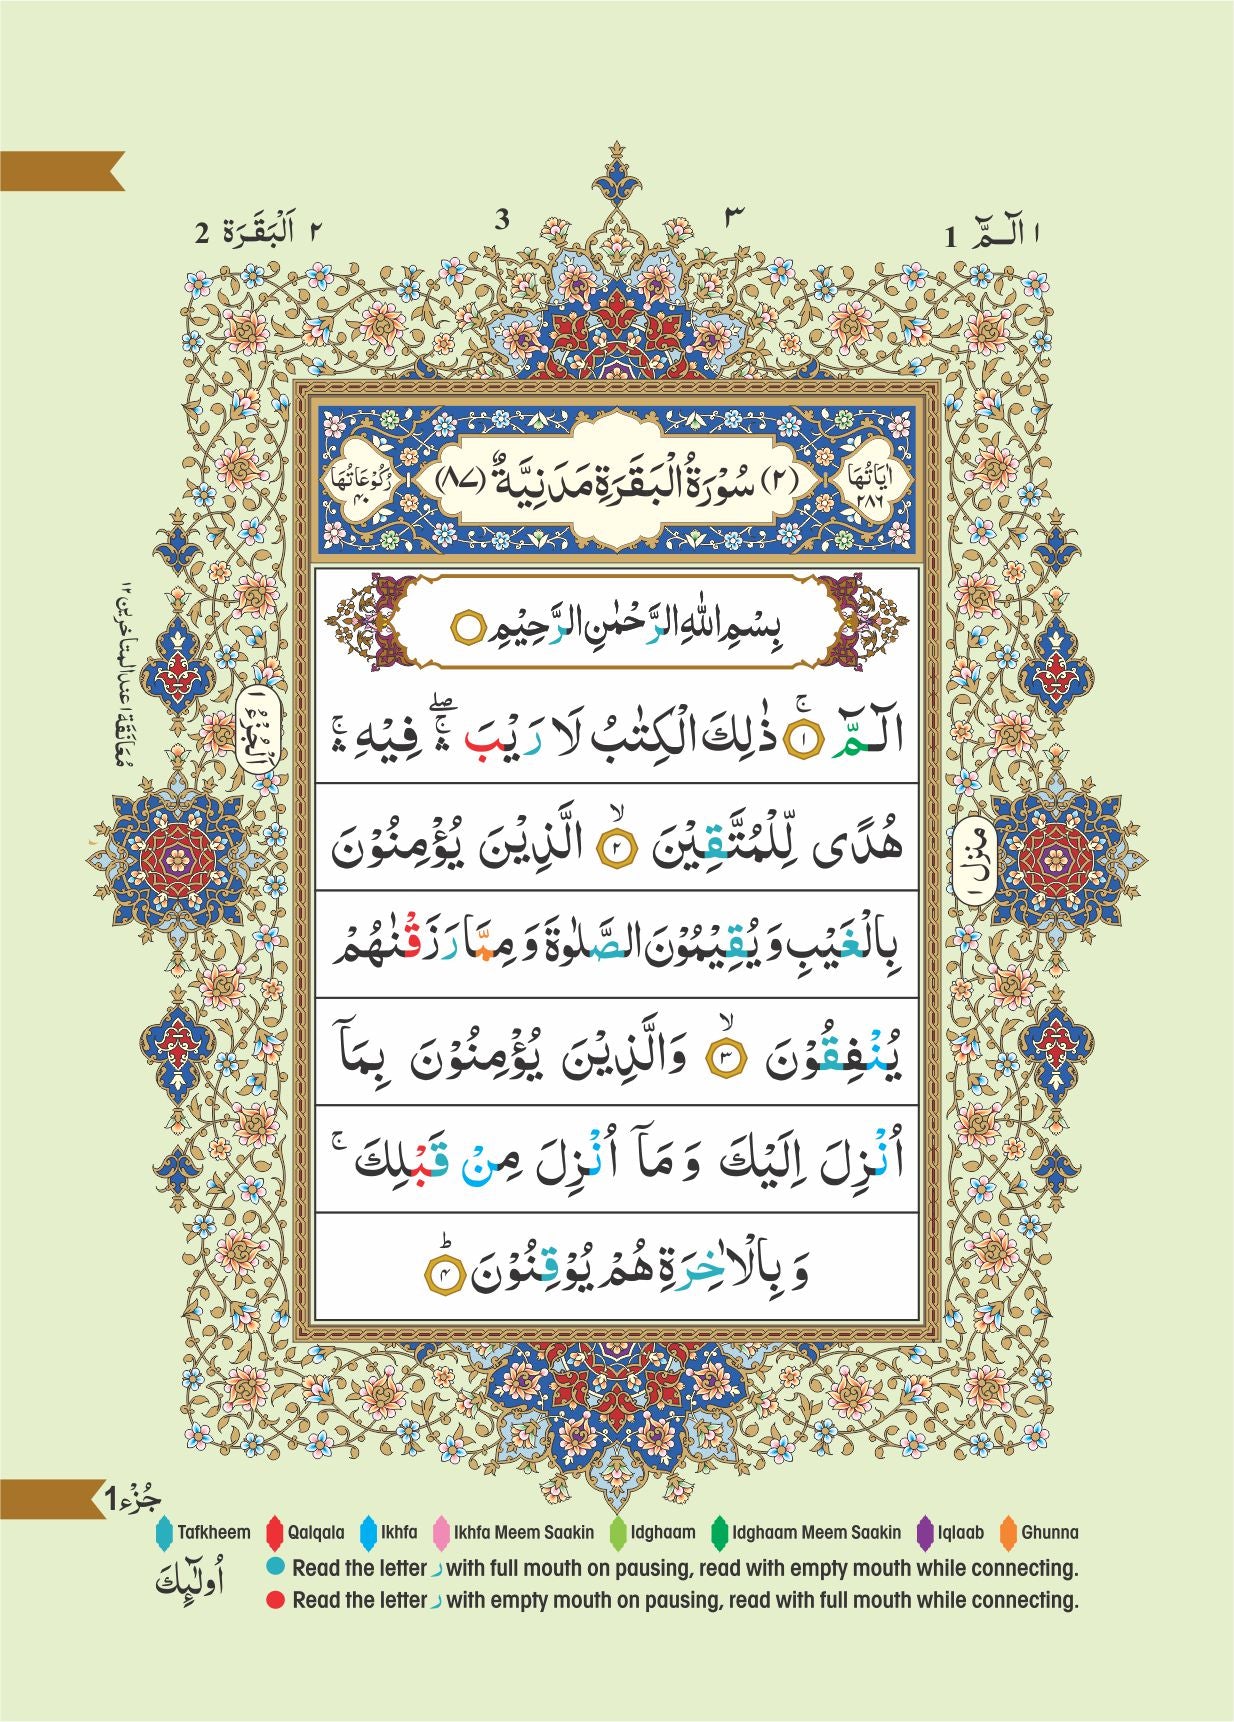 ١ الٓـمّٓ 1
٣
3
٢ اَلْبَقَرَة 2
اٰيَاتُهَا ٢٨٦
(٢) سُوْرَةُ الْبَقَرَةِ مَدَنِيَّةٌ (٨٧)
رُكُوْعَاتُهَا ٤٠
بِسْمِ اللّٰهِ الرَّحْمٰنِ الرَّحِيْمِ
الٓـمّٓ ۚ ١ ذٰلِكَ الْكِتٰبُ لَا رَيْبَ ۛۖۚ فِيْهِ ۛۚ
هُدًى لِّلْمُتَّقِيْنَ ۙ ٢ الَّذِيْنَ يُؤْمِنُوْنَ
بِالْغَيْبِ وَيُقِيْمُوْنَ الصَّلٰوةَ وَمِمَّا رَزَقْنٰهُمْ
يُنْفِقُوْنَ ۙ ٣ وَالَّذِيْنَ يُؤْمِنُوْنَ بِمَآ
اُنْزِلَ اِلَيْكَ وَمَآ اُنْزِلَ مِنْ قَبْلِكَ ۚ
وَبِالْاٰخِرَةِ هُمْ يُوْقِنُوْنَ ؕ ٤
مُعَانَقَة ١ عند المتاخرين ١٢
اَلْجُزْءُ ١
منزل ١
جُزْء 1
Tafkheem Qalqala Ikhfa Ikhfa Meem Saakin Idghaam Idghaam Meem Saakin Iqlaab Ghunna
Read the letter ر with full mouth on pausing, read with empty mouth while connecting.
Read the letter ر with empty mouth on pausing, read with full mouth while connecting.
اُولٰٓئِكَ